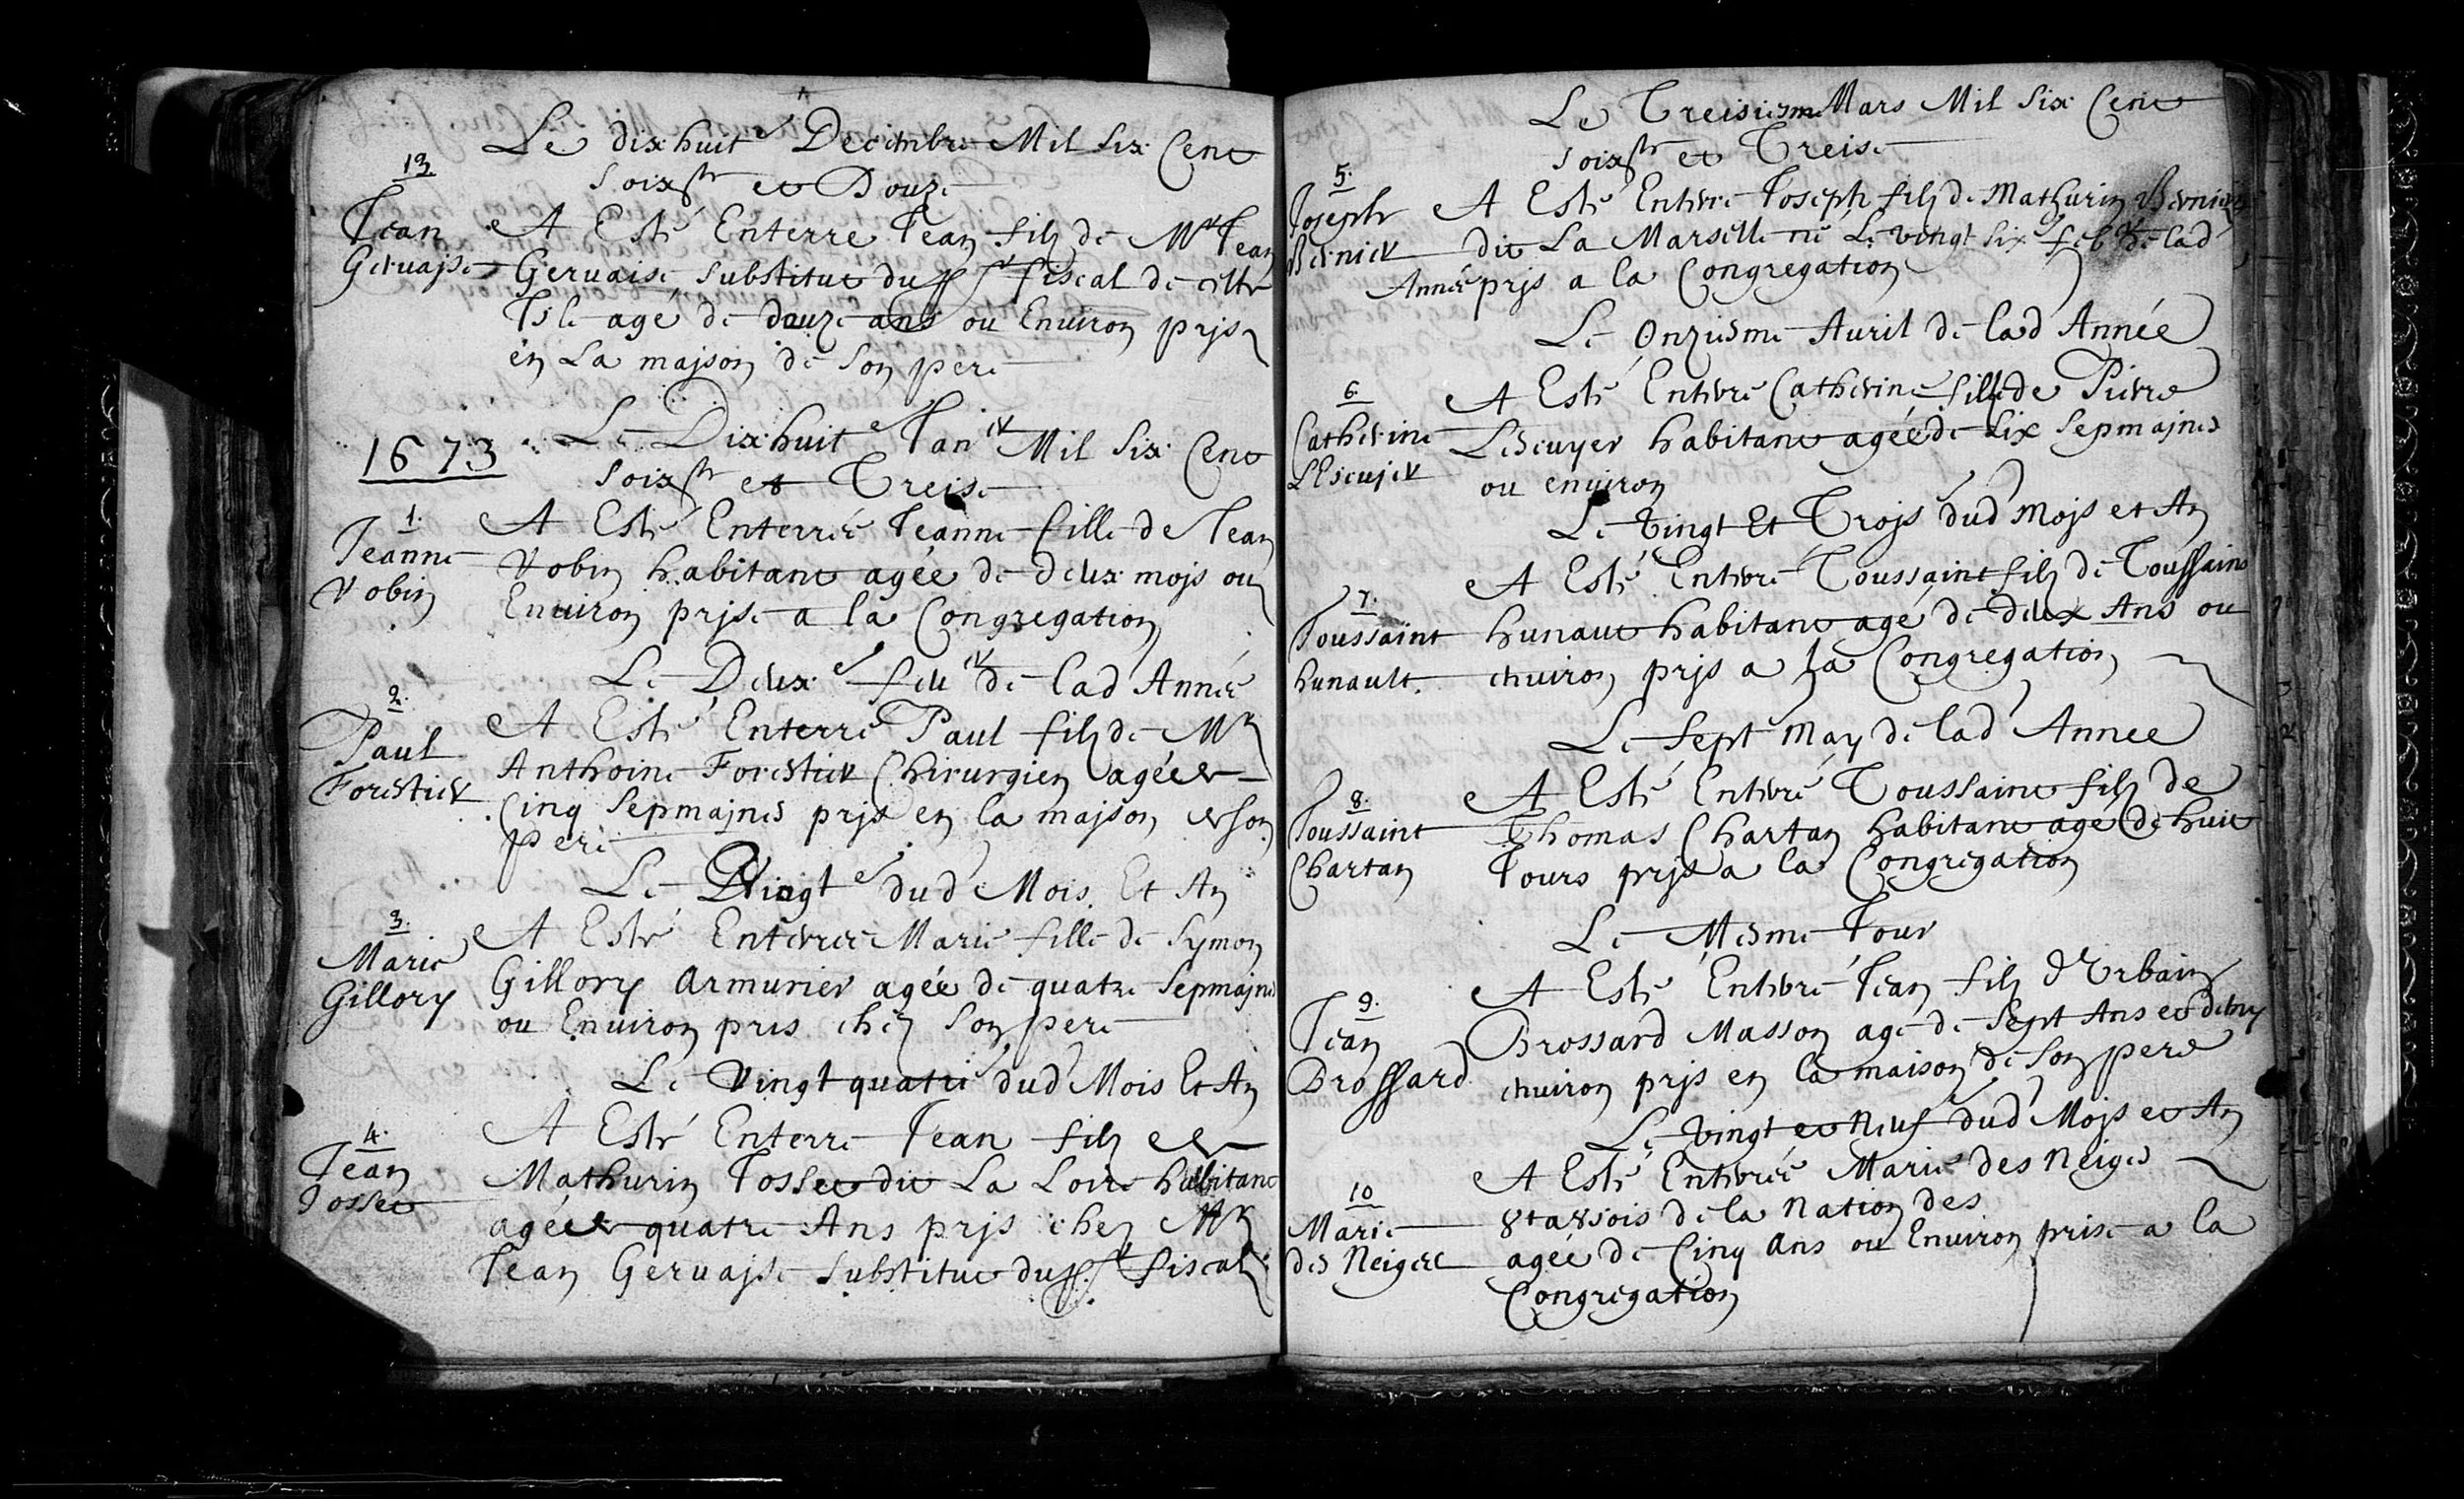 Le dixhuit.e Decembre Mil Six Cent
Soix.te et Douze
13
Jean
Gervaise
A Esté Enterré Jean fils de M.r Jean
Gervaise Substitut du p.r fiscal de cette
Isle agé de douze ans ou Environ pris
en La maison de Son pere
1673
Le Dixhuit.e Jan.er Mil Six Cent
Soix.te et Treise
1.
Jeanne
Vobin
A Esté Enterrée Jeanne fille de Jean
Vobin habitant agée de deux mojs ou
Environ prjse a la Congregation
Le Deux.e feu.er de lad Année
2.
Paul
Forestier
A Esté Enterré Paul fils de M.r
Anthoine Forestier Chirurgien agé de
Cinq Sepmajnes prjs en la majson de son
Pere
Le Vingt.e dud Mois Et An
3.
Marie
Gillory
A Esté Enterrée Marie fille de Symon
Gillory Armurier agée de quatre Sepmajnes
ou Environ pris chez Son pere
Le Vingt quatre dud Mois Et An
4.
Jean
Josset
A Esté Enterré Jean fils de
Mathurin Josset dit La Loire habitant
agé de quatre Ans prjs chez M.r
Jean Gervajse Substitut du p.r fiscal
Le Treisiesme Mars Mil Six Cent
Soix.te et Treise
5.
Joseph
Bernier
A Esté Enterré Joseph fils de Mathurin Bernier
dit La Marselle né Le vingt six.e feb.er de lad
Année prjs a la Congregation
Le Onziesme Auril de lad Année
6.
Catherine
LEscujer
A Esté Enterré Catherine fille de Pierre
Lescuyer habitant agée de Six Sepmajnes
ou environ
Le Vingt Et Trojs dud Mojs et An
7.
Toussaint
hunault.
A Esté Enterré Toussaint fils de Toussaint
hunaut habitant agé de deux Ans ou
enuiron prjs a la Congregation
Le Sept May de lad Annee
8.
Toussaint
Chartan
A Esté Enterré Toussaint fils de
Thomas Chartan habitant agé de huit
Jours prjs a la Congregation
Le Mesme Jour
9.
Jean
Brossard
A Esté Enterré Jean fils d'Vrbain
Brossard Masson agé de Sept Ans et demy
enuiron prjs en la maison de Son pere
Le Vingt et Neuf dud Mojs et An
10
Marie
des Neiges
A Esté Enterrée Marie des Neiges
8ta8ois de la Nation des
agée de Cinq Ans ou Environ prise a la
Congregation